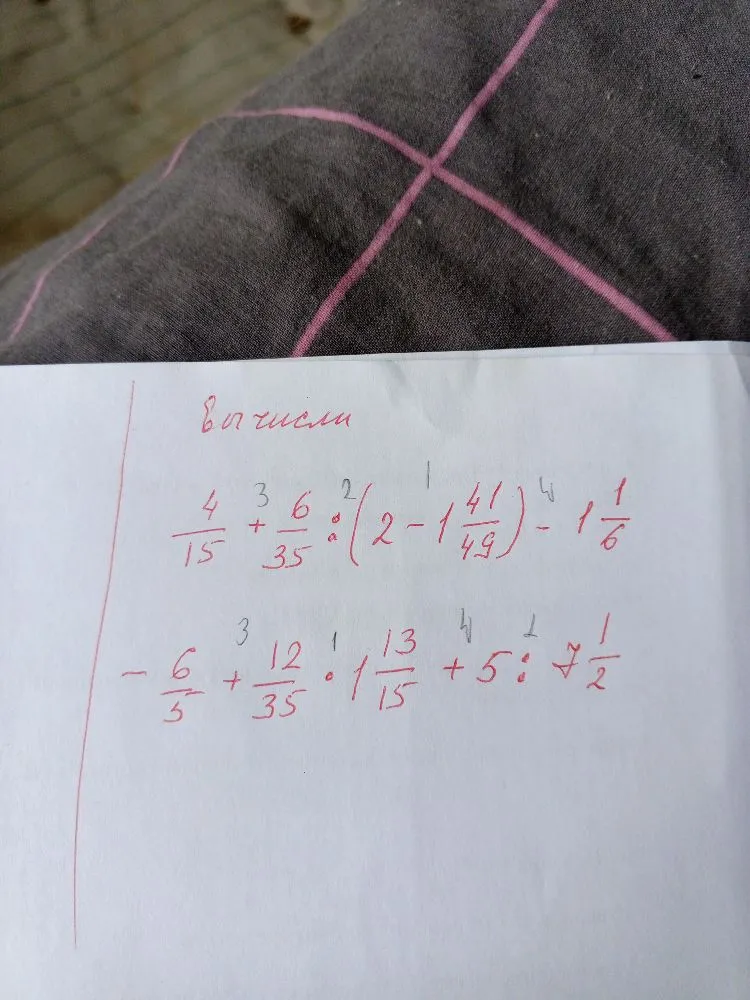 Вычисли
4/15 +³ 6/35 :² (2 -¹ 1 41/49) -⁴ 1 1/6
- 6/5 +³ 12/35 ·¹ 1 13/15 +⁴ 5 :² 7 1/2